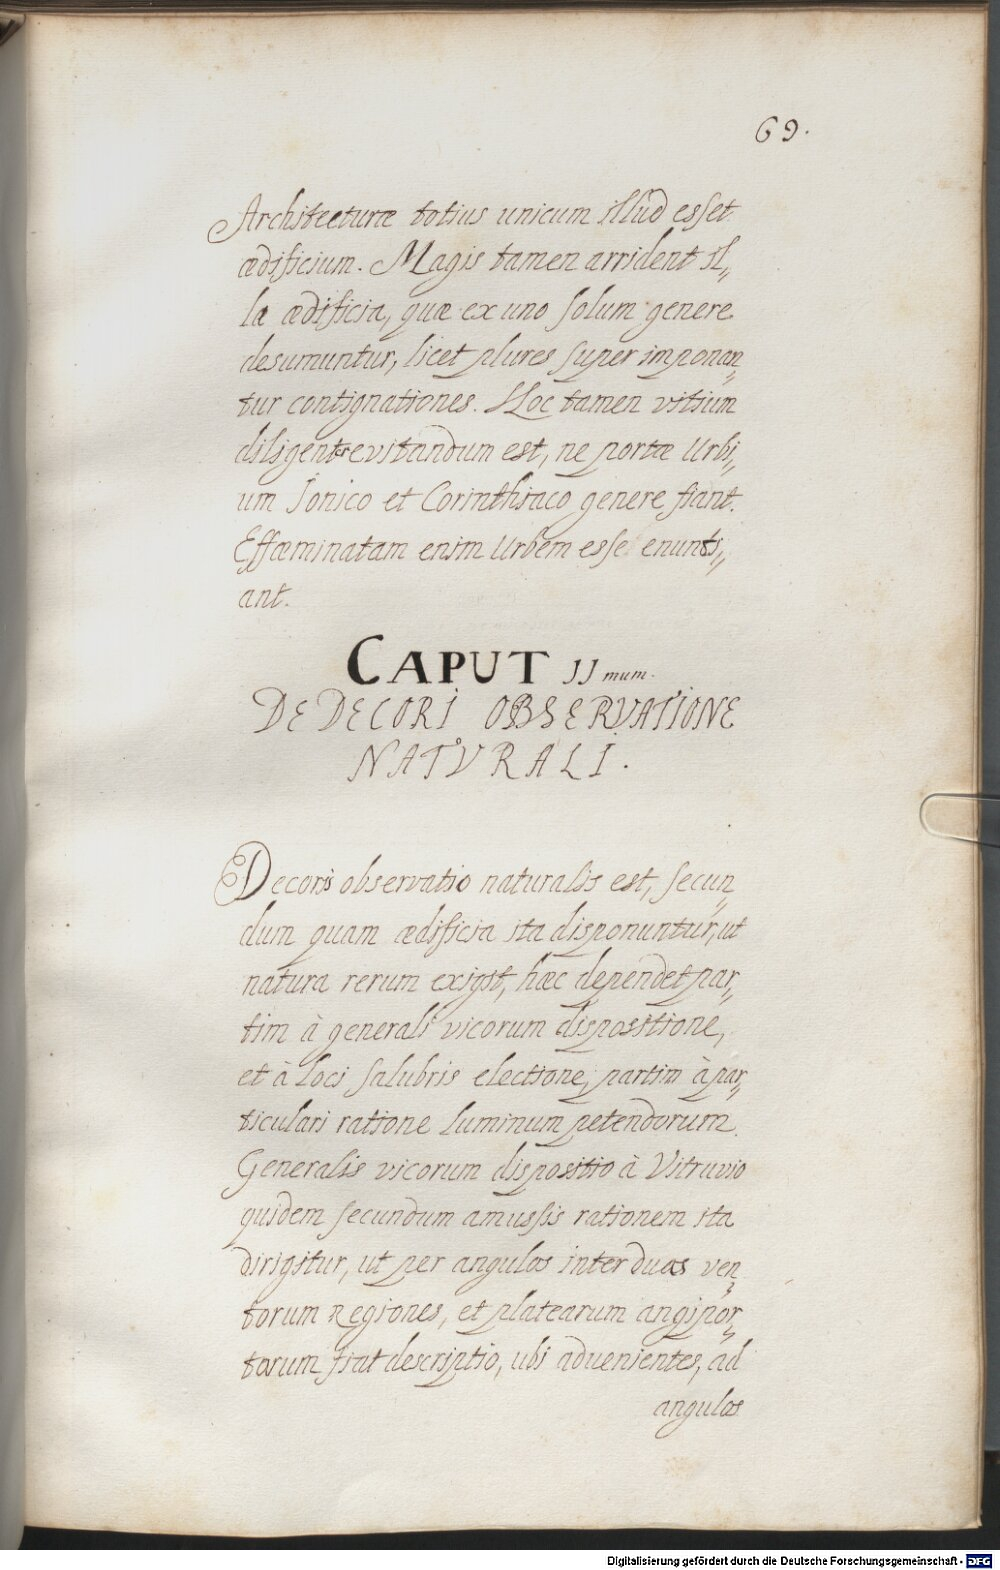 69.
Architecturæ totius unicum illud esset
ædificium. Magis tamen arrident il„
la ædificia, quæ ex uno solum genere
desumuntur, licet plures super imponan„
tur contignationes. Hoc tamen vitium
diligenter evitandum est, ne portæ Urbi„
um Jonico et Corinthiaco genere fiant.
Effæminatam enim Urbem esse enunti„
ant.
CAPUT IImum.
DE DECORI OBSERVATIONE
NATURALI.
Decoris observatio naturalis est, secun„
dum quam ædificia ita disponuntur, ut
natura rerum exigit, hæc dependet par„
tim à generali vicorum dispositione,
et à loci salubris electione, partim à par„
ticulari ratione luminum petendorum.
Generalis vicorum dispositio à Vitruvio
quidem secundum amussis rationem ita
dirigitur, ut per angulos inter duas ven„
torum Regiones, et platearum angipor„
torum fiat descriptio, ubi advenientes, ad
angulos
Digitalisierung gefördert durch die Deutsche Forschungsgemeinschaft - DFG